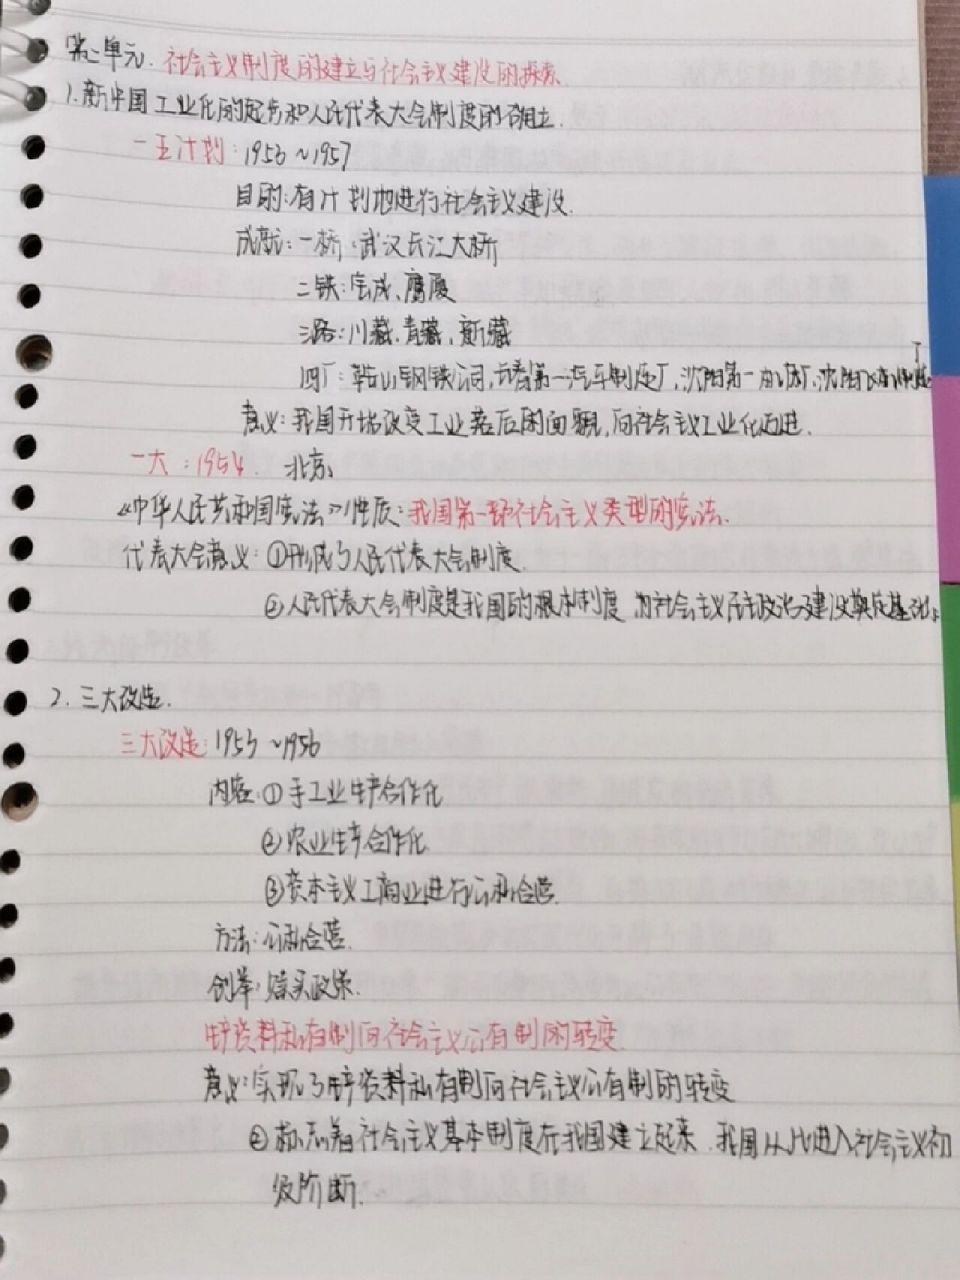 第二单元. 社会主义制度的建立与社会主义建设的探索
1.新中国工业化的起步和人民代表大会制度的确立.
一五计划: 1953~1957
目的:有计划地进行社会主义建设.
成就: 一桥:武汉长江大桥
二铁:宝成、鹰厦
三路:川藏、青藏、新藏
四厂: 鞍山钢铁公司,长春第一汽车制造厂,沈阳第一机床厂,沈阳飞机制造厂
意义:我国开始改变工业落后的面貌,向社会主义工业化迈进.
一大:1954. 北京
《中华人民共和国宪法》性质:我国第一部社会主义类型的宪法.
代表大会意义: ①形成了人民代表大会制度.
②人民代表大会制度是我国的根本制度 为社会主义民主政治建设奠定基础.
2. 三大改造.
三大改造: 1953~1956
内容:①手工业生产合作化
②农业生产合作化
③资本主义工商业进行公私合营.
方法:公私合营.
创举:赎买政策.
生产资料私有制向社会主义公有制的转变
意义:实现了生产资料私有制向社会主义公有制的转变
②标志着社会主义基本制度在我国建立起来.我国从此进入社会主义初
级阶断.